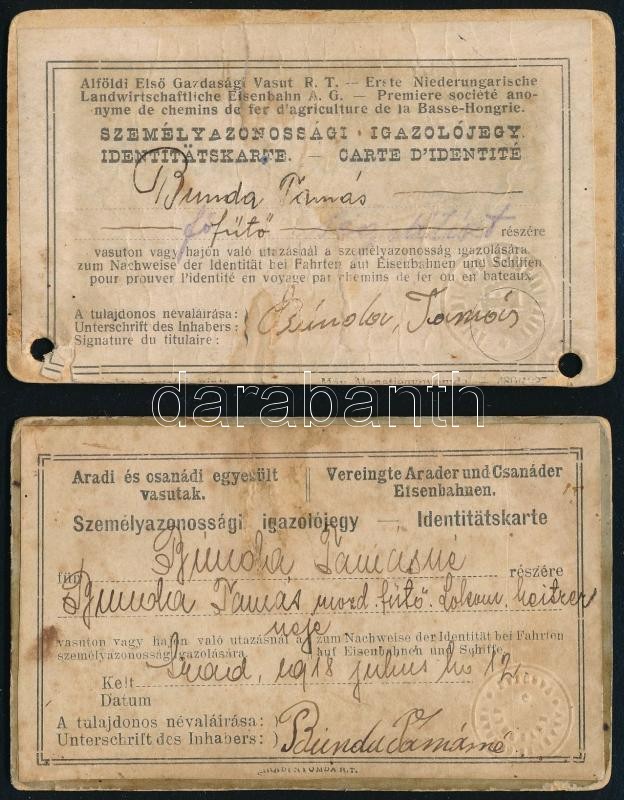 Alföldi Első Gazdasági Vasut R. T. — Erste Niederungarische
Landwirtschaftliche Eisenbahn A. G. — Premiere société ano-
nyme de chemins de fer d'agriculture de la Basse-Hongrie.
SZEMÉLYAZONOSSÁGI IGAZOLÓJEGY.
IDENTITÄTSKARTE. — CARTE D'IDENTITÉ
Bunda Tamás
főfűtő részére
vasuton vagy hajón való utazásnál a személyazonosság igazolására.
zum Nachweise der Identität bei Fahrten auf Eisenbahnen und Schiffen
pour prouver l'identité en voyage par chemins de fer ou en bateaux.
A tulajdonos névaláirása:
Unterschrift des Inhabers:
Signature du titulaire:
Bunda Tamás
darabanth
Aradi és csanádi egyesült
vasutak.
Vereingte Arader und Csanáder
Eisenbahnen.
Személyazonossági igazolójegy — Identitätskarte
für Bunda Tamásné részére
Bunda Tamás mozd. fűtő Lokom. heitzer
neje
vasuton vagy hajón való utazásnál a
személyazonosság igazolására.
zum Nachweise der Identität bei Fahrten
auf Eisenbahnen und Schiffe
Kelt Arad, 1918 julius hó 12
Datum
A tulajdonos névaláirása:
Unterschrift des Inhabers:
Bunda Tamásné
ARADI NYOMDA R.T.